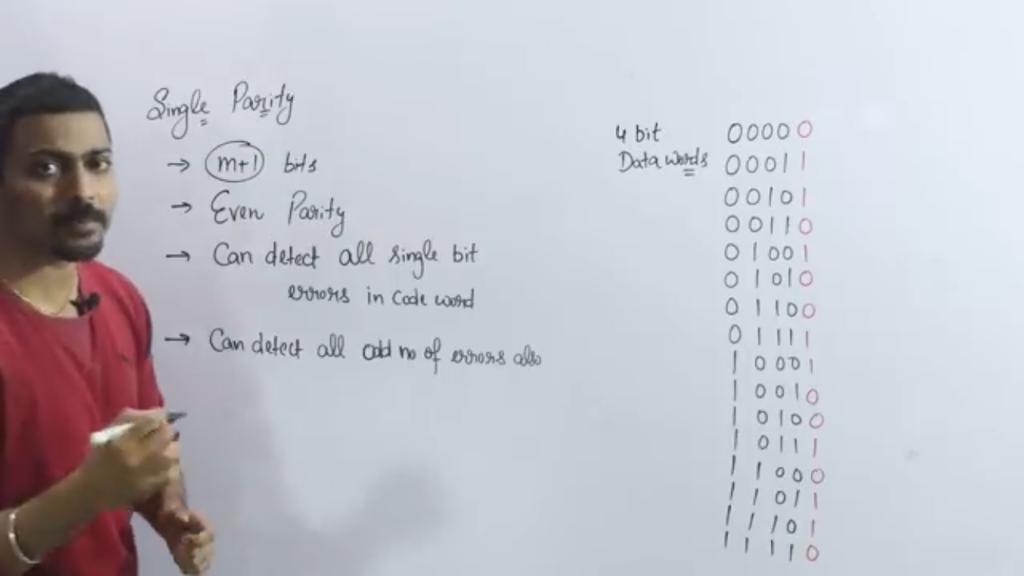 Single Parity
→ m+1 bits
→ Even Parity
→ Can detect all single bit
errors in code word
→ Can detect all odd no of errors also
4 bit
Data words
0 0 0 0 0
0 0 0 1 1
0 0 1 0 1
0 0 1 1 0
0 1 0 0 1
0 1 0 1 0
0 1 1 0 0
0 1 1 1 1
1 0 0 0 1
1 0 0 1 0
1 0 1 0 0
1 0 1 1 1
1 1 0 0 0
1 1 0 1 1
1 1 1 0 1
1 1 1 1 0